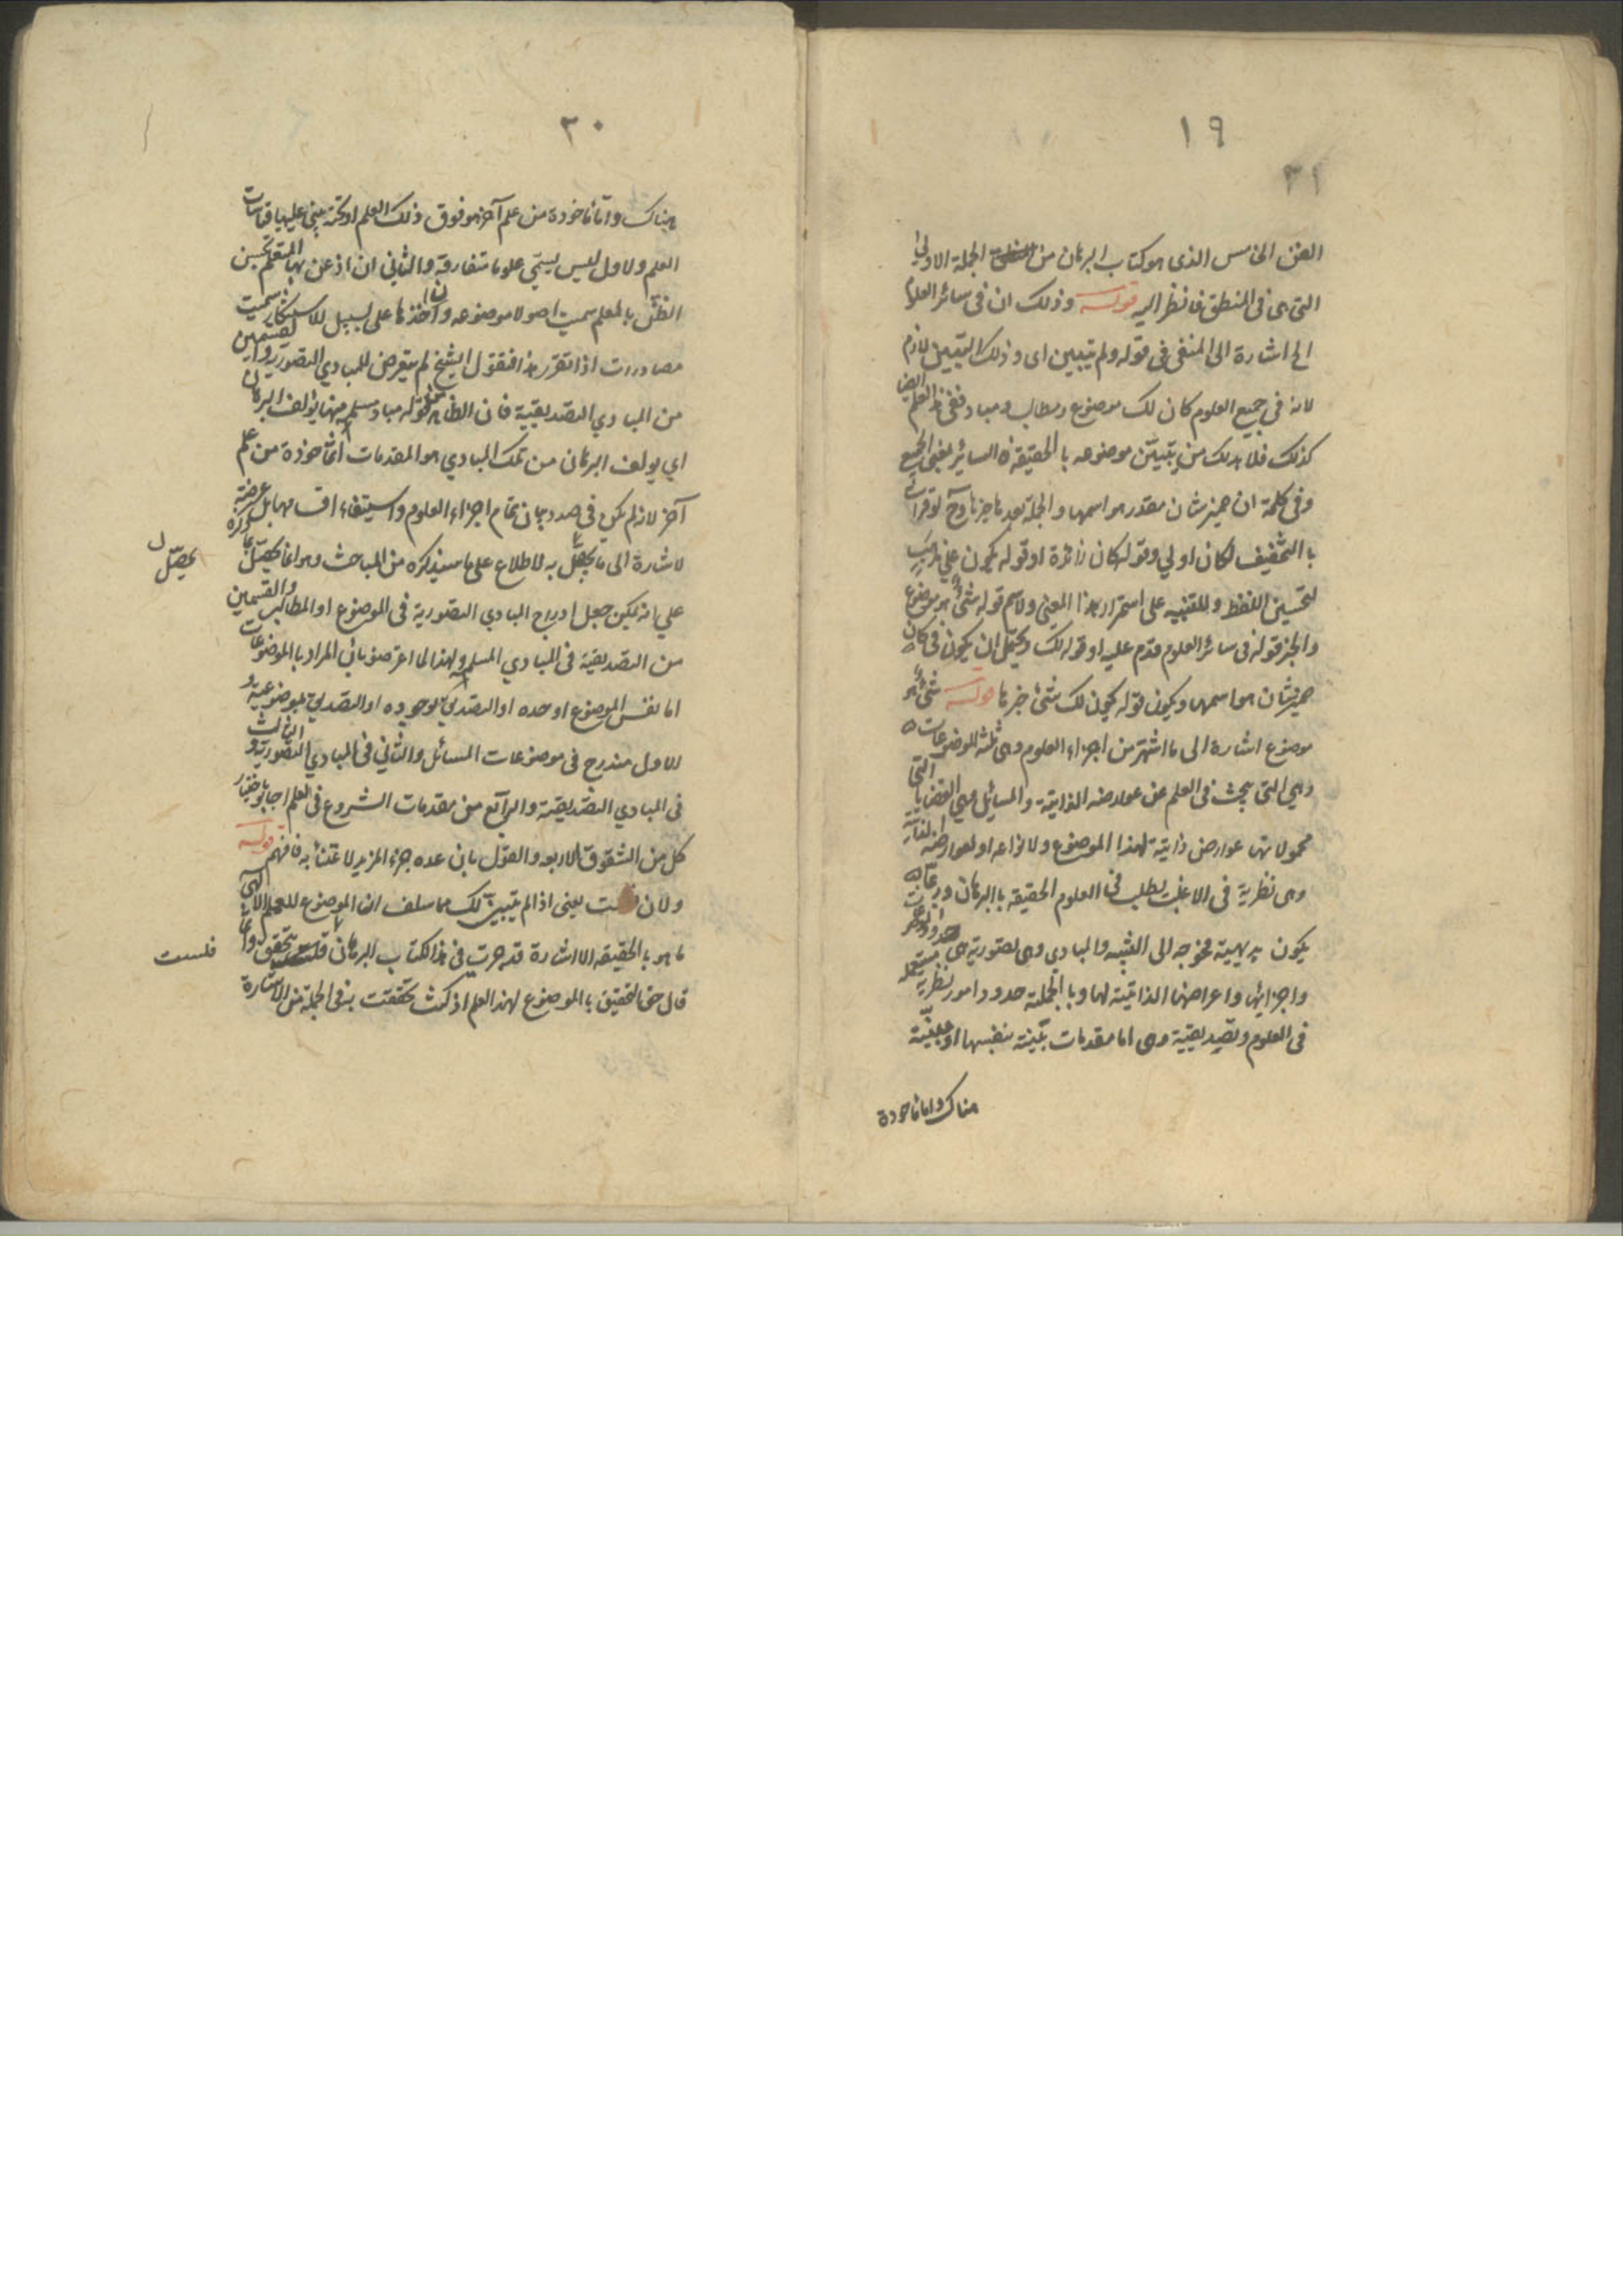 ١٩
٣٢
الفن الخامس الذى هو كتاب البرهان من الجملة الاولى
التى هى فى المنطق فانظر اليه قوله وذلك ان فى سائر العلوم
الخ اشارة الى المنفى فى قوله ولم تتبين اى وذلك التبيين لازم
لانه فى جميع العلوم كان لك موضوع ومطالب ومباد ففى هذا العلم ايضا
كذلك فلا بد لك من تبيّن موضوعه بالحقيقة السائر بمعنى الجميع
وفى كلمة ان ضمير شان مقدر هو اسمها والجملة بعدها خبرها وح لو قرأت
بالتخفيف لكان اولي وقوله كان زائدة او قوله يكون علي
لتحسين اللفظ وللتنبيه على استمرار هذا المعنى والاسم قوله شئ هو موضوع
والخبر قوله فى سائر العلوم قدم عليه او قوله لك ويحتمل ان يكون فى كان
ضمير شان هو اسمها ويكون قوله يكون لك شئ خبرها قوله شئ هو
موضوع اشارة الى ما اشتهر من اجزاء العلوم وهى ثلثة الموضوعات
وهي التى يبحث فى العلم عن عوارضه الذاتية والمسائل وهي القضايا التى
محمولاتها عوارض ذاتية لهذا الموضوع ولانواعه او لعوارضه
وهى نظرية فى الاغلب يطلب فى العلوم الحقيقة بالبرهان وربما
يكون بديهية محوجه الى التنبيه والمبادي وهى تصورية هى حدود
واجزائها واعراضها الذاتية لها وبالجملة حدود امور نظرية مستعملة
فى العلوم وتصديقية وهى اما مقدمات بيّنة بنفسها او مبيّنة
هناك واما ماخودة
٣٠
هناك واما ماخوذة من علم آخر هو فوق ذلك العلم يبنى عليها قياسات
العلم والاول ليس يسمّى علوما متعارفة والثاني ان اذعن بها المتعلم بحسن
الظنّ بالمعلم سميت اصولا موضوعه وان اخذها على سبيل الاستنكار سميت
مصادرات اذا تقرر هذا فنقول الشيخ لم يتعرض للمبادي التصوريه
من المبادي التصديقية فان الظاهر من قوله مباد مسلمة منها يؤلف البرهان
اي يولف البرهان من تلك المبادي هو المقدمات الماخوذة من علم
آخر لانه لم يكن فى صدد بيان تمام اجزاء العلوم واستيفاء اقسامها بل غرضه
الاشارة الى ما يحصل به الاطلاع على ما سيذكره من المباحث وهو انما يحصل بما
يحصّل
علي انه يمكن جعل ادراج المبادي التصورية فى الموضوع او المطالب والقسمين
من التصديقية فى المبادي المسلمة ولهذا لما اعترضوا بان المراد بالموضوعات
اما نفس الموضوع او حده او التصديق بوجوده او التصديق بموضوعيته و
الاول مندرج فى موضوعات المسائل والثاني فى المبادي التصورية والثالث
فى المبادي التصديقية والرابع من مقدمات الشروع فى العلم اجابوا باختيار
كل من الشقوق الاربعه والقول بان عده جزء المزيد الاعتناء به فافهم قوله
والان يعنى اذا لم يتبين لك مما سلف ان الموضوع للعلم الالهي
ما هو بالحقيقة الا اشارة قد جرت فى هذا الكتاب البرهان
فلست
قال حق التحقيق بالموضوع لهذا العلم اذ كنت تحققت بنفى الجملة من الاشارة